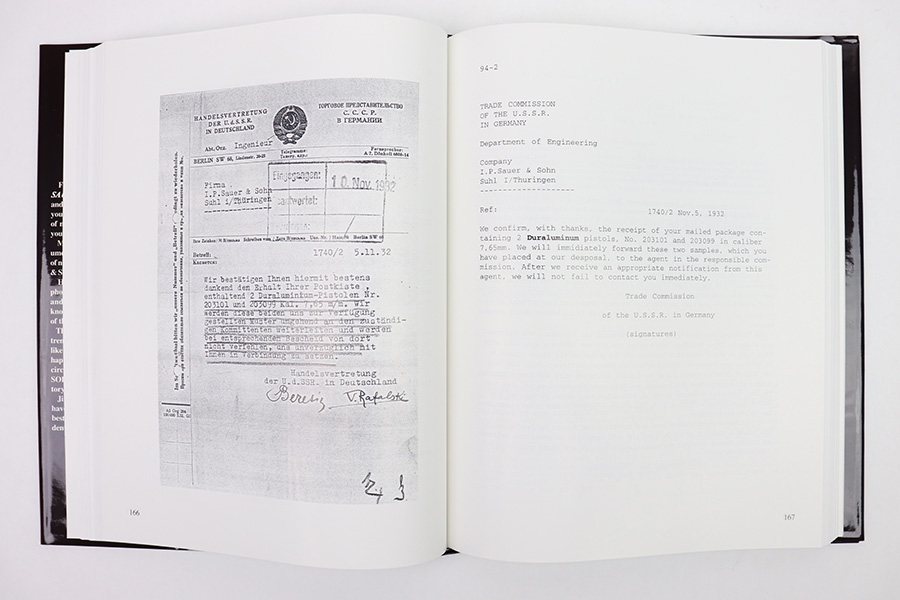 HANDELSVERTRETUNG
DER U.d.S.S.R.
IN DEUTSCHLAND
ТОРГОВОЕ ПРЕДСТАВИТЕЛЬСТВО
С. С. С. Р.
В ГЕРМАНИИ
Abt. Отд. Ingenieur
BERLIN SW 68, Lindenstr. 20-25
Telegramme:
Fernsprecher:
Firma
I.P.Sauer & Sohn
Suhl i/Thüringen
Eingegangen:
10. Nov. 1932
Betreff:
Касается:
1740/2 5.11.32
Wir bestätigen Ihnen hiermit bestens
dankend den Erhalt Ihrer Postkiste,
enthaltend 2 Duraluminium-Pistolen Nr.
203101 und 203099 Kal. 7,65 m/m. Wir
werden diese beiden uns zur Verfügung
gestellten Muster umgehend an den zuständi-
gen Kommittenten weiterleiten und werden
bei entsprechenden Bescheid von dort
nicht verfehlen, uns unverzüglich mit
Ihnen in Verbindung zu setzen.
Handelsvertretung
der U.d.SSR. in Deutschland
166
94-2
TRADE COMMISSION
OF THE U.S.S.R.
IN GERMANY
Department of Engineering
Company
I.P.Sauer & Sohn
Suhl I/Thuringen
Ref:
1740/2 Nov.5, 1932
We confirm, with thanks, the receipt of your mailed package con-
taining 2 Duraluminum pistols, No. 203101 and 203099 in caliber
7,65mm. We will immidiately forward these two samples, which you
have placed at our desposal, to the agent in the responsible com-
mission. After we receive an appropriate notification from this
agent, we will not fail to contact you immediately.
Trade Commission
of the U.S.S.R. in Germany
(signatures)
167